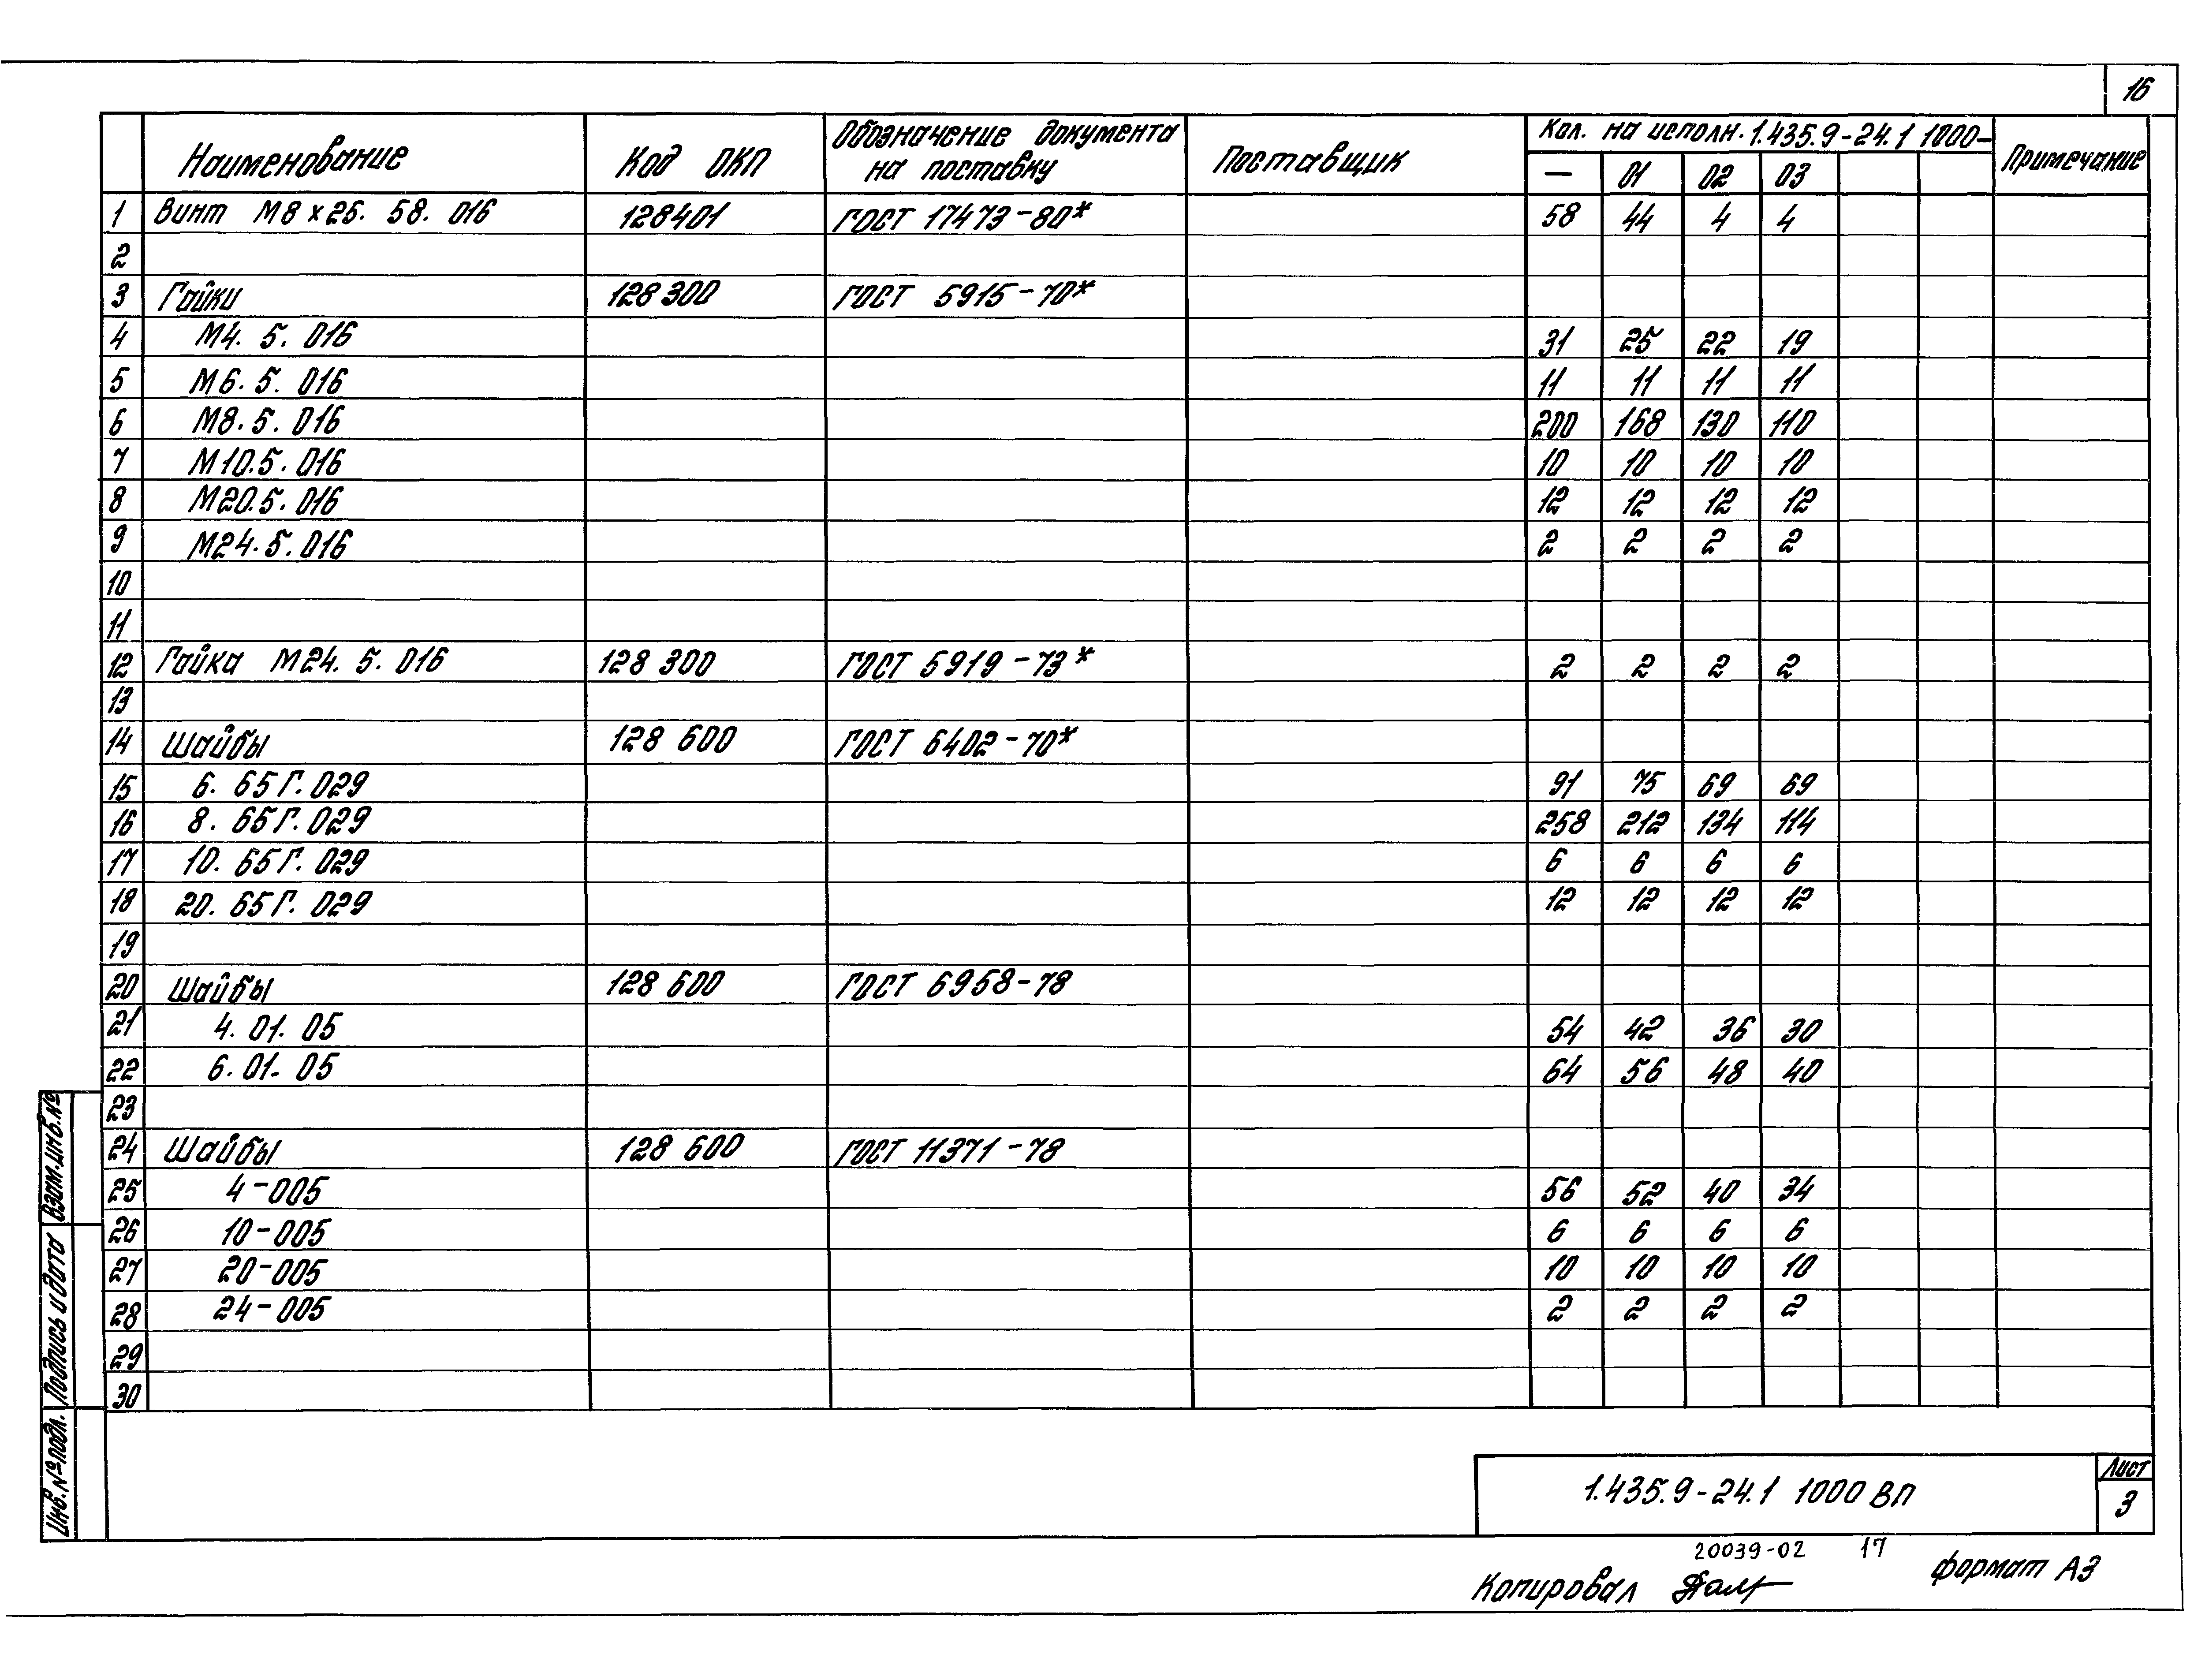 16
Наименование Код ОКП Обозначение документа на поставку Поставщик Кол. на исполн. 1.435.9-24.1 1000- Примечание
— 01 02 03
1 Винт М8х25. 58. 016 128401 ГОСТ 17473-80* 58 44 4 4
2
3 Гайки 128 300 ГОСТ 5915-70*
4 М4. 5. 016 31 25 22 19
5 М6. 5. 016 11 11 11 11
6 М8. 5. 016 200 168 130 110
7 М10.5. 016 10 10 10 10
8 М20.5. 016 12 12 12 12
9 М24.5.016 2 2 2 2
10
11
12 Гайка М24. 5. 016 128 300 ГОСТ 5919-73* 2 2 2 2
13
14 Шайбы 128 600 ГОСТ 6402-70*
15 6. 65Г. 029 91 75 69 69
16 8. 65Г. 029 258 212 134 114
17 10. 65Г. 029 6 6 6 6
18 20. 65Г. 029 12 12 12 12
19
20 Шайбы 128 600 ГОСТ 6958-78
21 4. 01. 05 54 42 36 30
22 6. 01. 05 64 56 48 40
23
24 Шайбы 128 600 ГОСТ 11371-78
25 4-005 56 52 40 34
26 10-005 6 6 6 6
27 20-005 10 10 10 10
28 24-005 2 2 2 2
29
30
Взам.инв.№
Подпись и дата
Инв.№подл.
1.435.9-24.1 1000 ВП
Лист
3
20039-02 17
Копировал формат А3